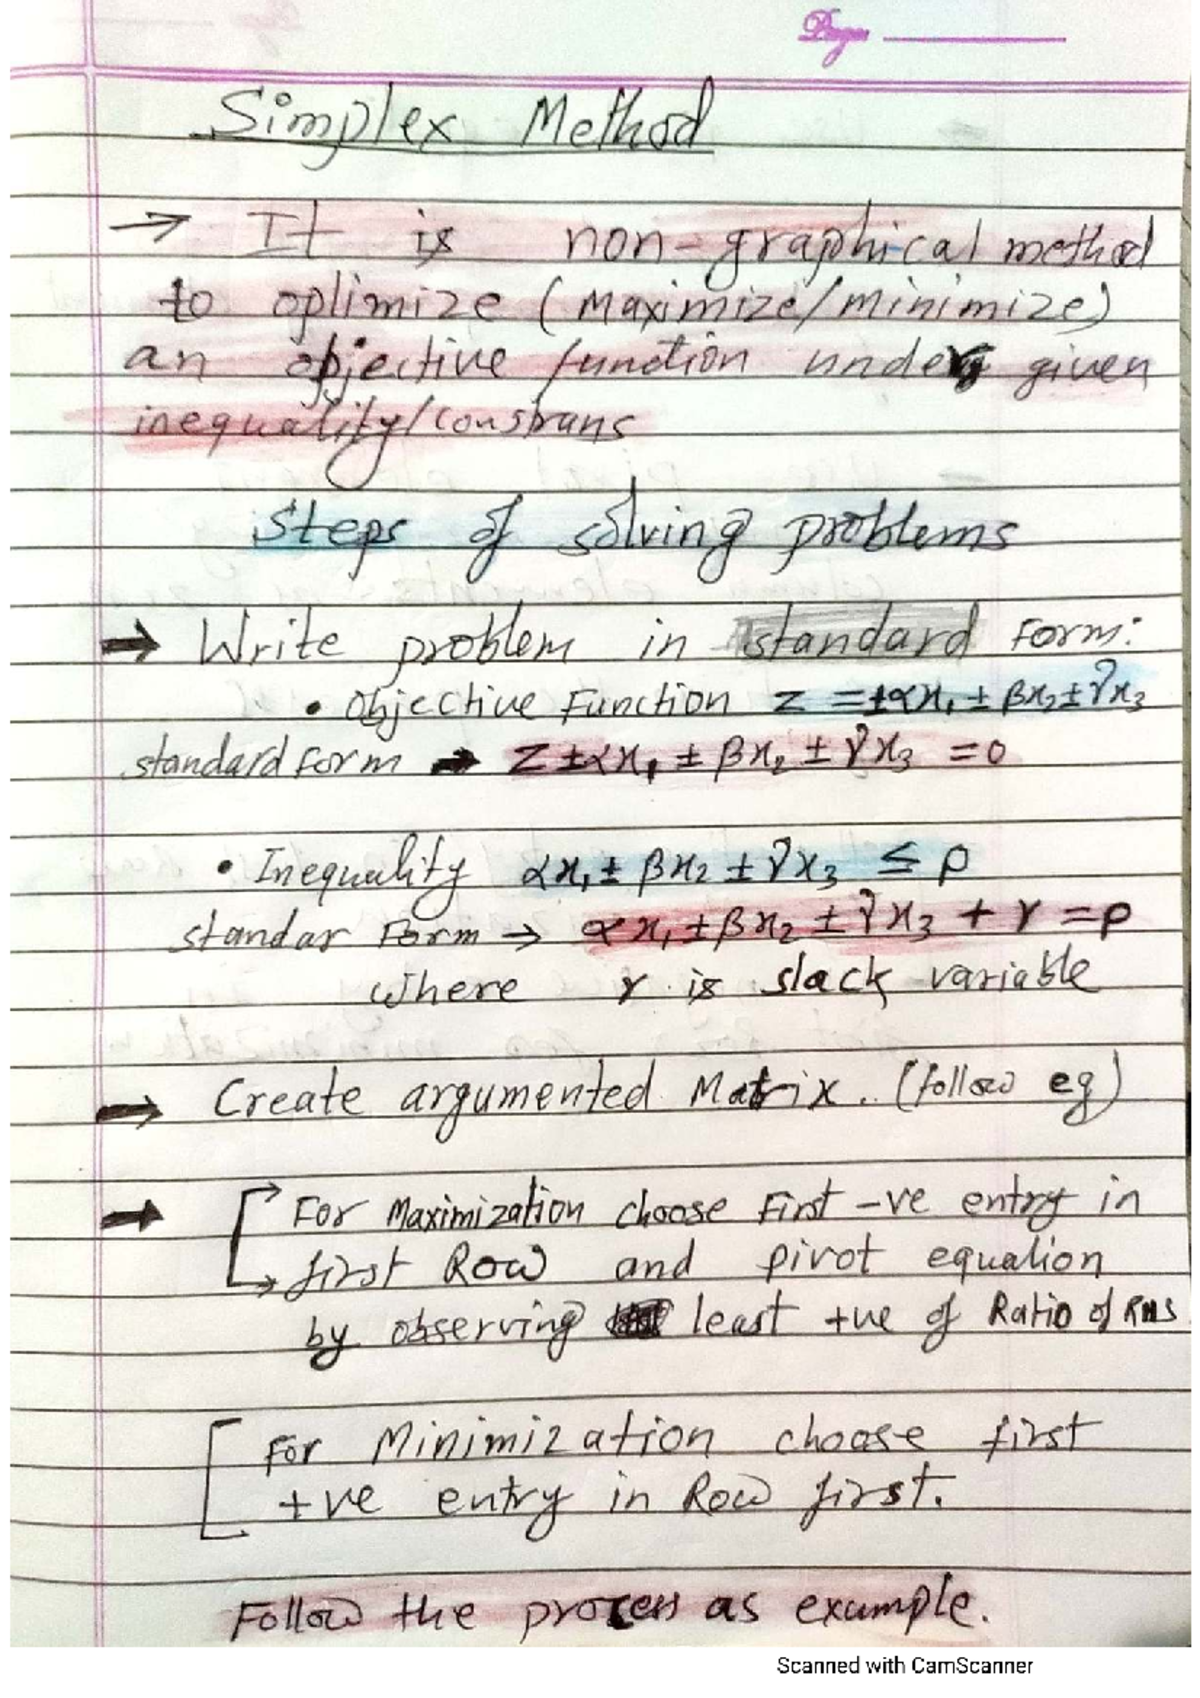 Page
Simplex Method
→ It is non-graphical method
to optimize (Maximize/minimize)
an objective function under given
inequality/constrans
Steps of solving problems
→ Write problem in standard Form:
• Objective Function z = ±αx₁ ± βx₂ ± γx₃
standard form → Z ± αx₁ ± βx₂ ± γx₃ = 0
• Inequality αx₁ ± βx₂ ± γx₃ ≤ p
standar Form → αx₁ ± βx₂ ± γx₃ + r = p
where r is slack variable
→ Create argumented Matrix. (follow eg)
→ For Maximization choose First -ve entry in
first Row and pivot equation
by observing least +ve of Ratio of RHS
For Minimization choose first
+ve entry in Row first.
Follow the process as example.
Scanned with CamScanner